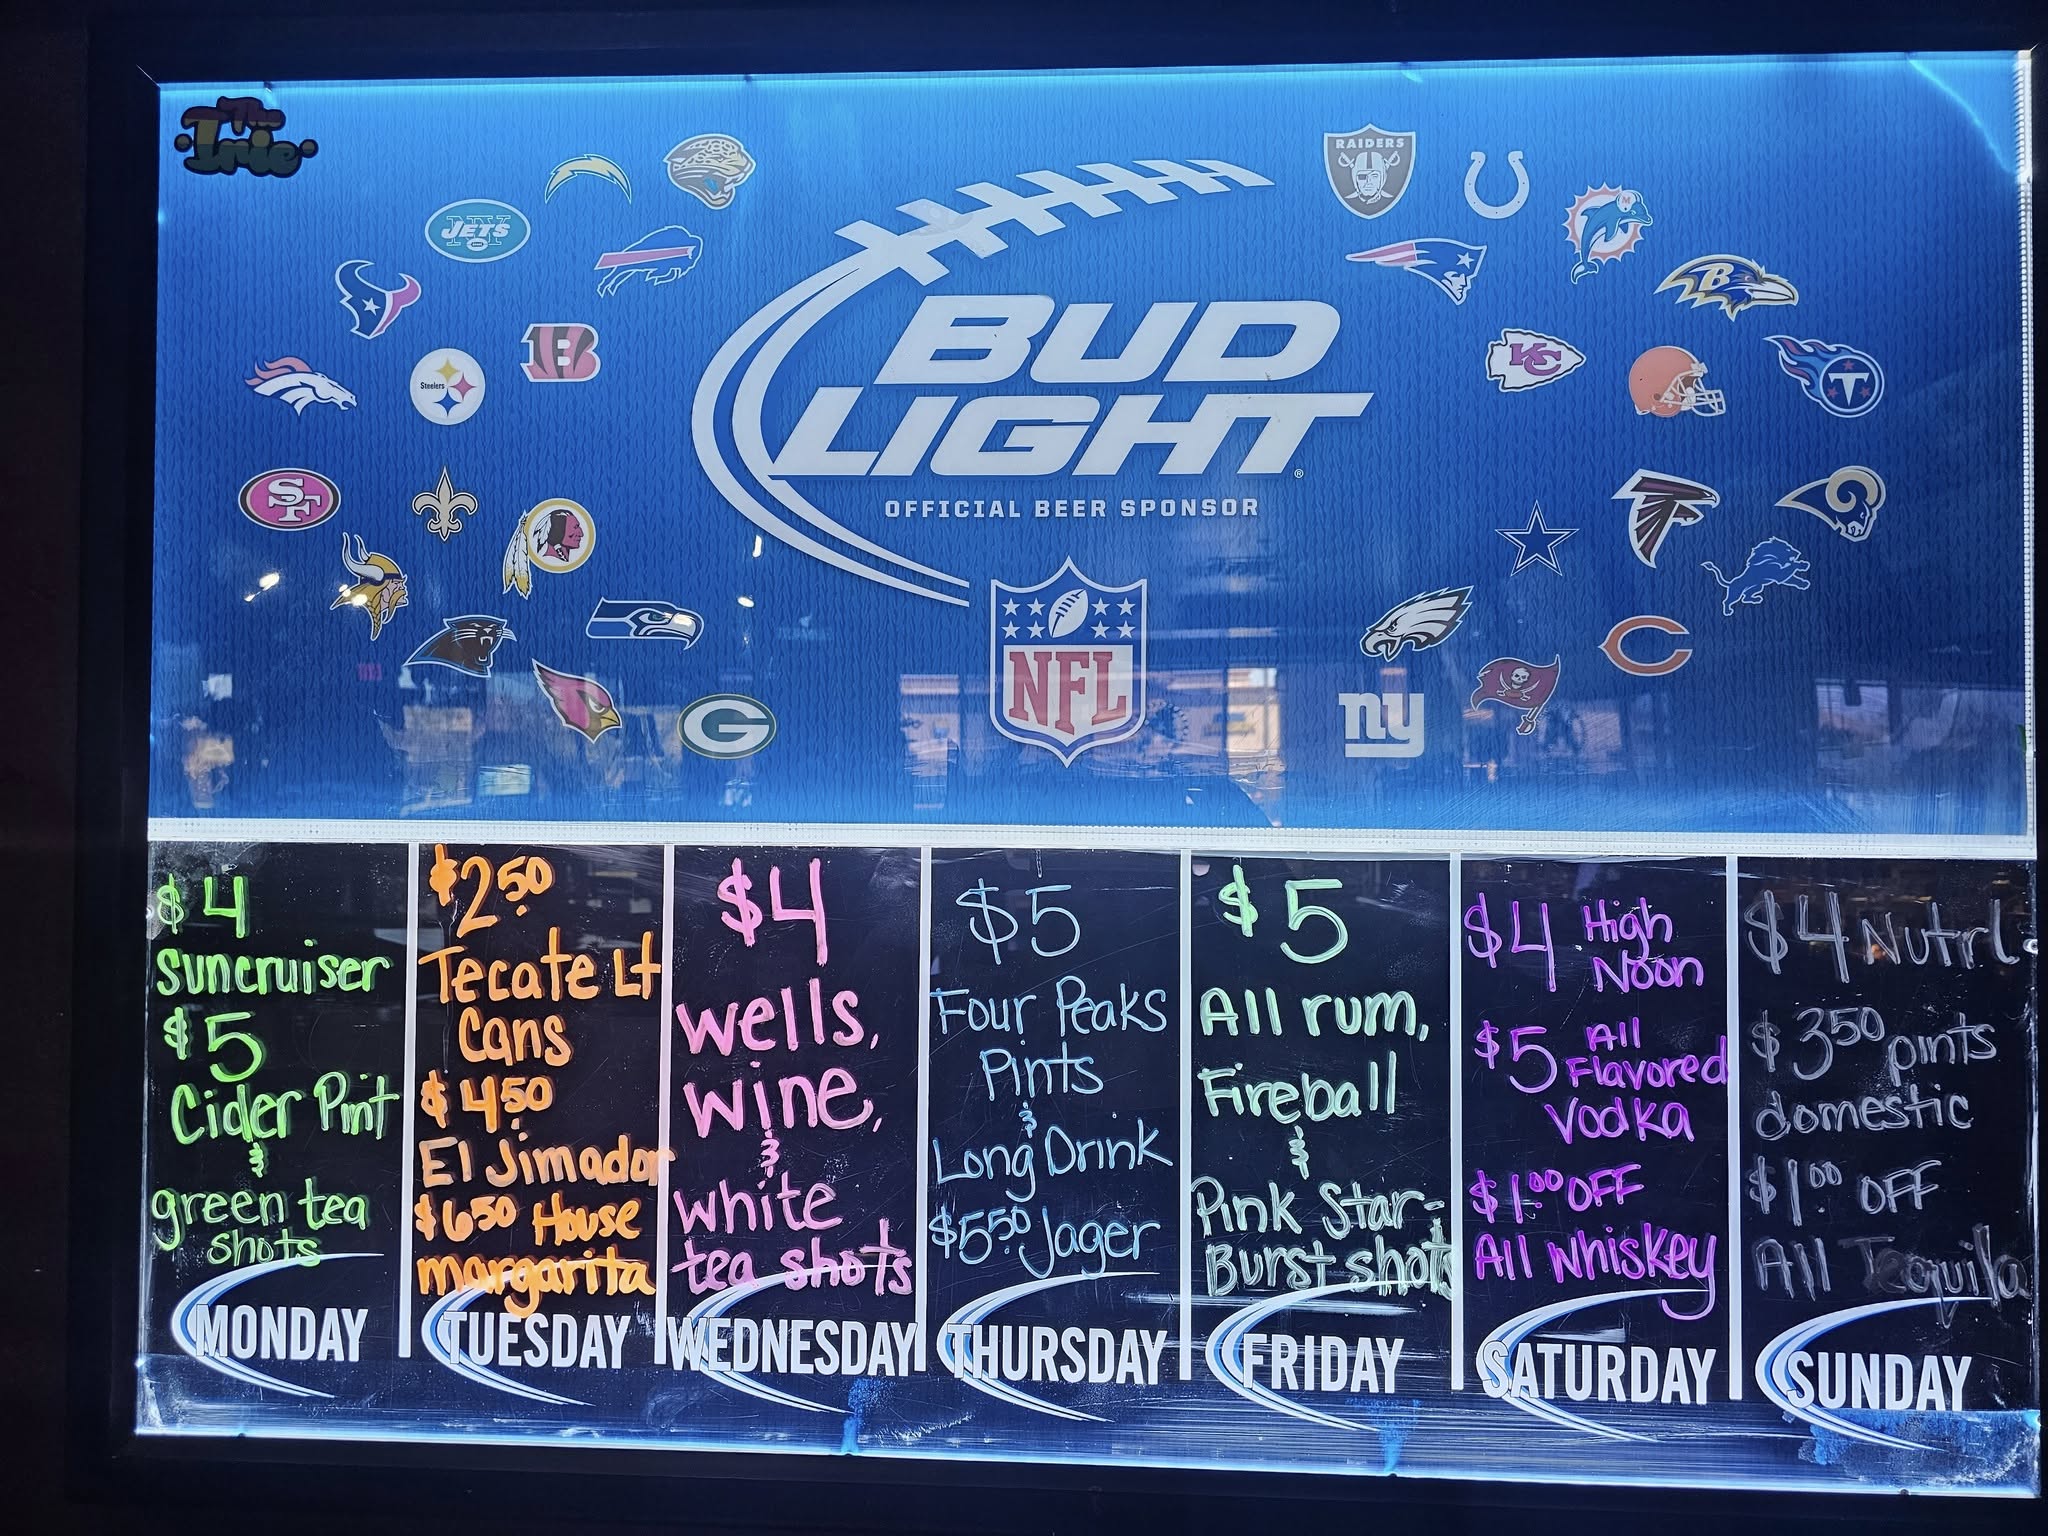 The
Irie
JETS
NY
RAIDERS
M
B
B
Steelers
KC
T
BUD
LIGHT®
OFFICIAL BEER SPONSOR
SF
C
G
NFL
ny
$4
Suncruiser
$5
Cider Pint
&
green tea
shots
MONDAY
$2.50
Tecate Lt
Cans
$4.50
El Jimador
$6.50 House
margarita
TUESDAY
$4
wells,
wine,
&
white
tea shots
WEDNESDAY
$5
Four Peaks
Pints
&
Long Drink
$5.50 Jager
THURSDAY
$5
All rum,
Fireball
&
Pink Star-
Burst shots
FRIDAY
$4 High
Noon
$5 All
Flavored
Vodka
$1.00 OFF
All Whiskey
SATURDAY
$4 Nutrl
$3.50 pints
domestic
$1.00 OFF
All Tequila
SUNDAY